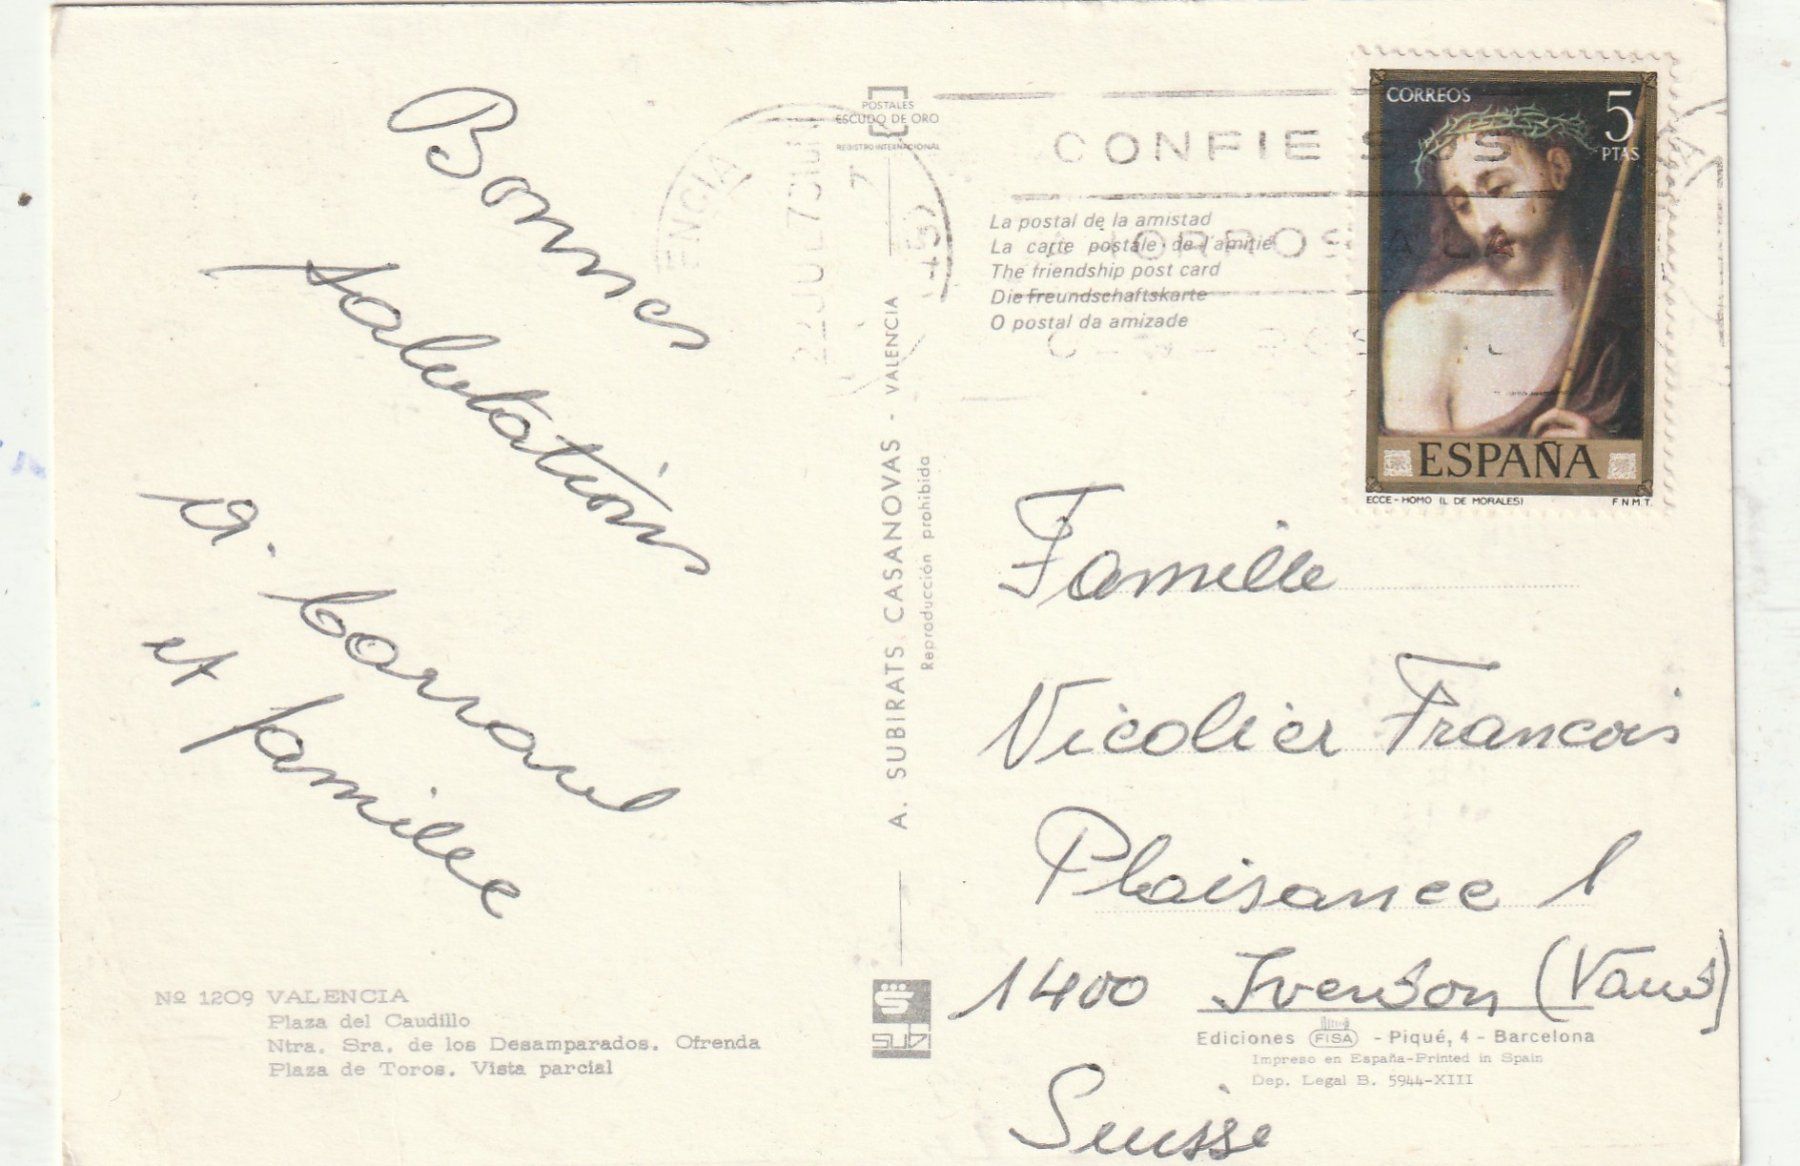 Bonnes
salutations
A. Barravel
et famille
Nº 1209 VALENCIA
Plaza del Caudillo
Ntra. Sra. de los Desamparados. Ofrenda
Plaza de Toros. Vista parcial
POSTALES
ESCUDO DE ORO
REGISTRO INTERNACIONAL
A. SUBIRATS CASANOVAS - VALENCIA
Reproducción prohibida
SUBI
ENCIA
22 JUL 73
CONFIE SUS
AHORROS A LA
La postal de la amistad
La carte postale de l'amitié
The friendship post card
Die Freundschaftskarte
O postal da amizade
CORREOS
5
PTAS
ESPAÑA
ECCE - HOMO (L DE MORALES)
F.N.M.T.
Famille
Nicolier Francois
Plaisance 1
1400 Yverdon (Vaud)
Suisse
Ediciones FISA - Piqué, 4 - Barcelona
Impreso en España-Printed in Spain
Dep. Legal B. 5944-XIII